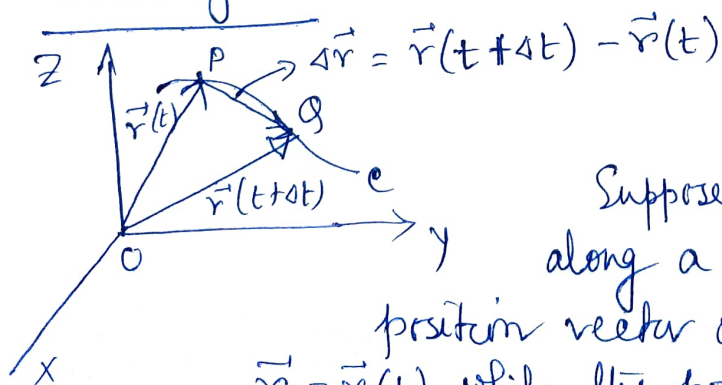 Z
P
Δr⃗ = r⃗(t+Δt) - r⃗(t)
r⃗(t)
Q
r⃗(t+Δt)
C
O
y
X
Suppose
along a
position vector
r⃗ = r⃗(t) while